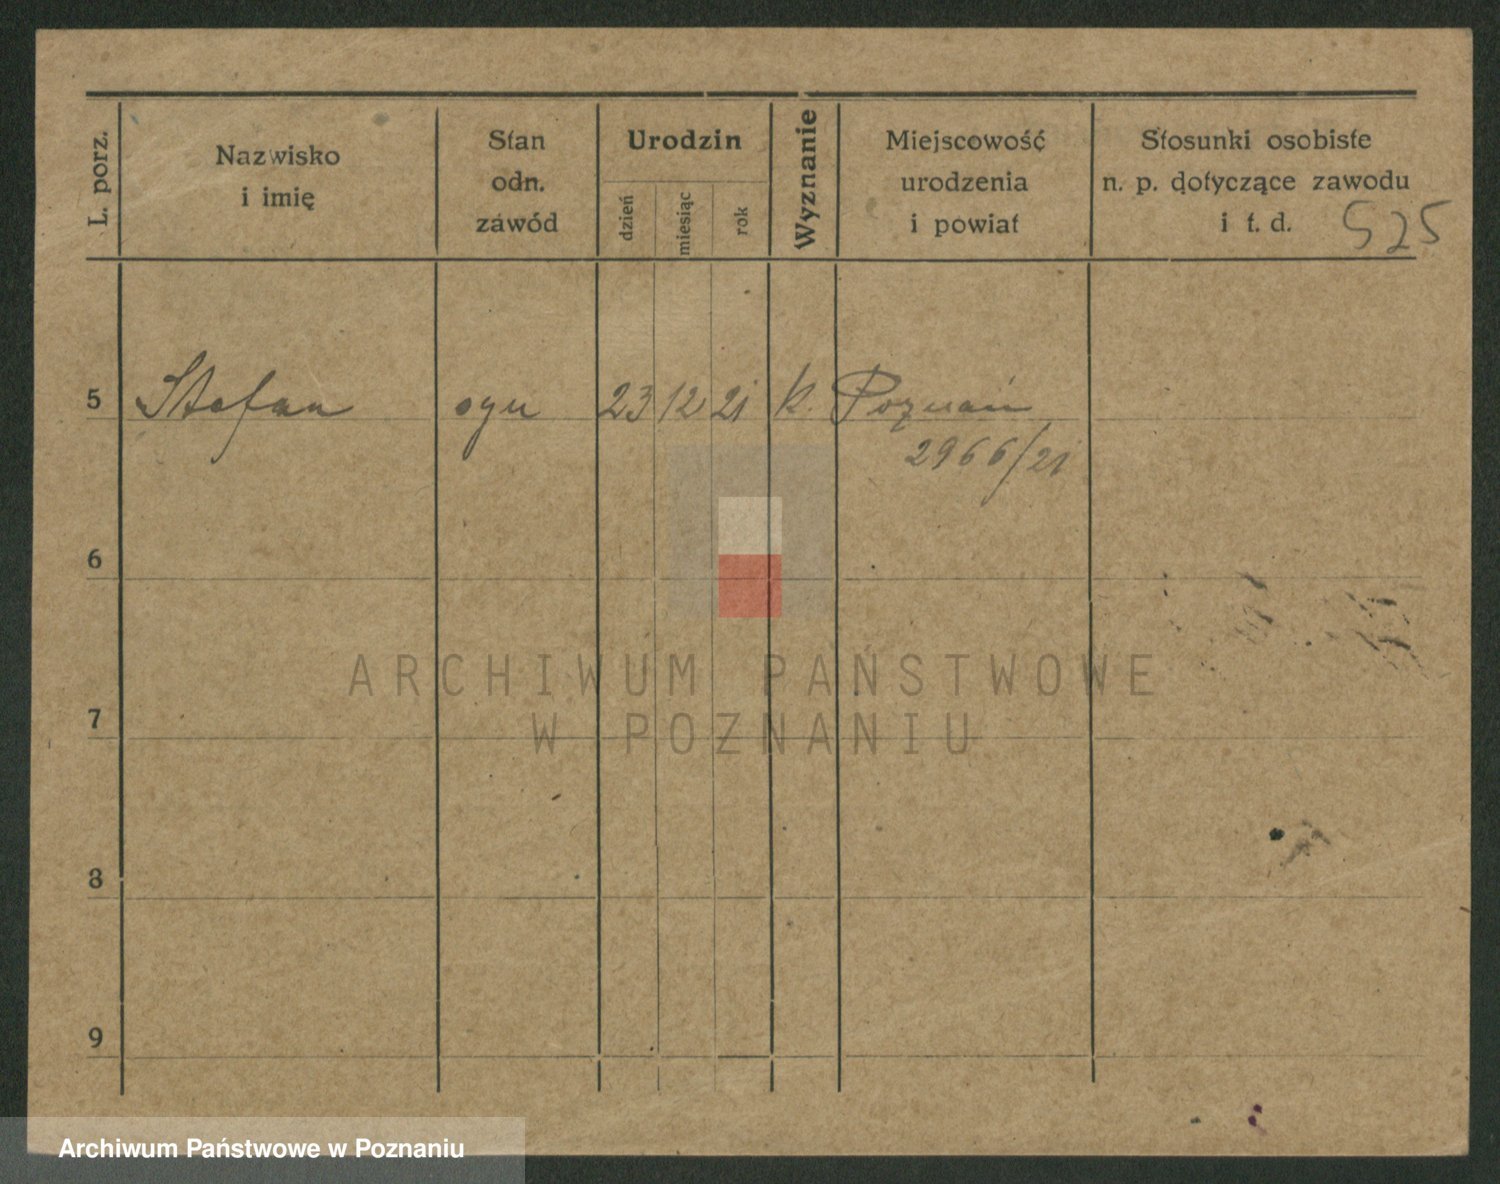 L. porz.
Nazwisko
i imię
Stan
odn.
zawód
Urodzin
dzień
miesiąc
rok
Wyznanie
Miejscowość
urodzenia
i powiat
Stosunki osobiste
n. p. dotyczące zawodu
i t. d.
525
5 Stefan syn 23 12 21 k. Poznań
2966/21
6
7
8
9
ARCHIWUM PAŃSTWOWE
W POZNANIU
Archiwum Państwowe w Poznaniu